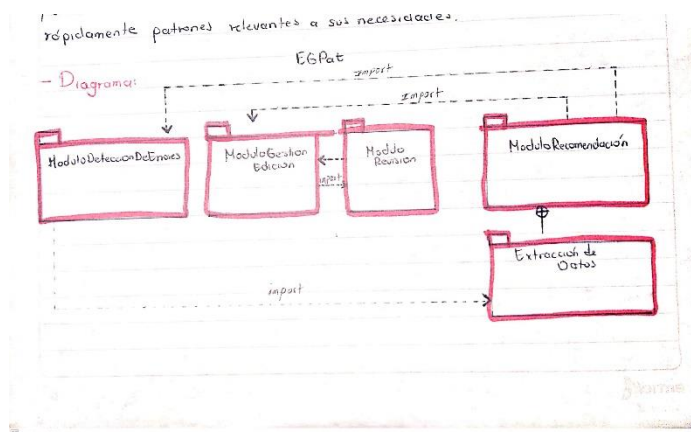 rápidamente patrones relevantes a sus necesidades.
EGPat
- Diagrama:
import
import
ModuloDeteccionDeErrores
ModuloGestion
Edición
Modulo
Revision
ModuloRecomendación
import
Extracción de
Datos
import